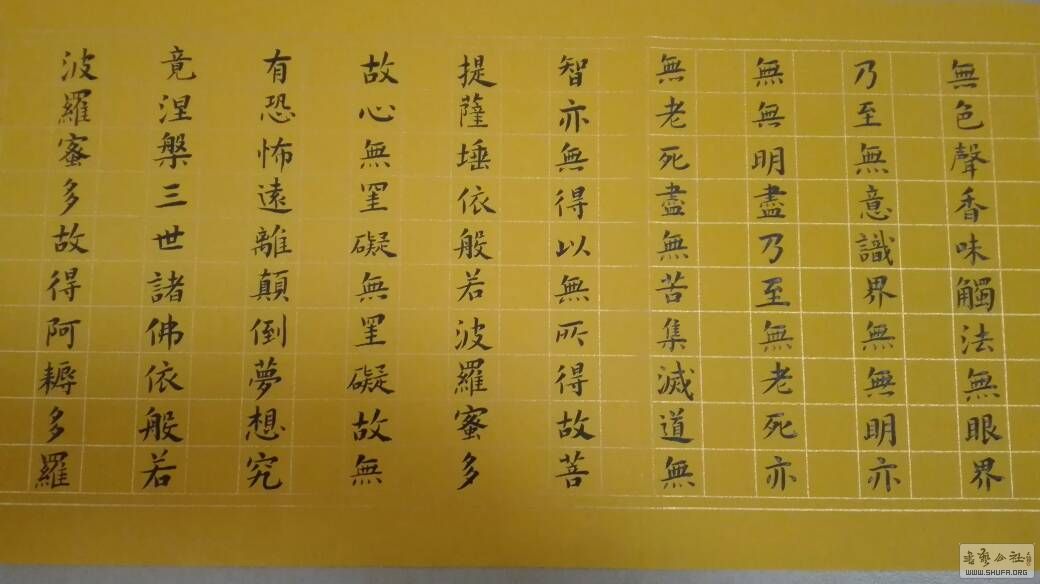 無色聲香味觸法無眼界
乃至無意識界無無明亦
無無明盡乃至無老死亦
無老死盡無苦集滅道無
智亦無得以無所得故菩
提薩埵依般若波羅蜜多
故心無罣礙無罣礙故無
有恐怖遠離顛倒夢想究
竟涅槃三世諸佛依般若
波羅蜜多故得阿耨多羅
WWW.SHUFA.ORG